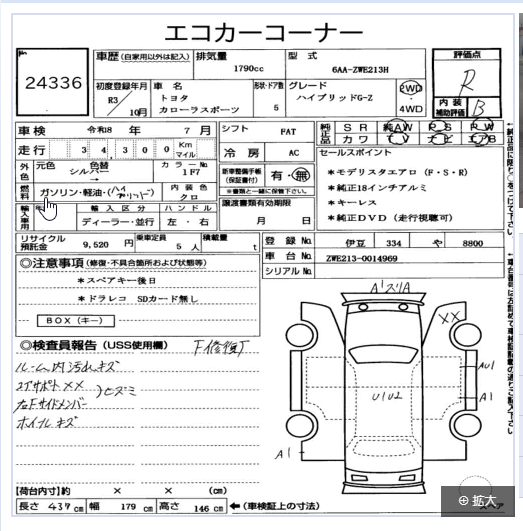 エコカーコーナー
24336
車歴 (自家用以外は記入)
排気量
1790cc
型式
6AA-ZWE213H
評価点
R
初度登録年月
R3/10月
車名
トヨタ
カローラスポーツ
形状・ドア数
5
グレード
ハイブリッドG-Z
2WD
4WD
内装
補助評価
B
車検 令和8年 7月
シフト FAT
純正品 SR 純AW PS PW
カワ TV ナビ エアB
走行 34,300 Km マイル
冷房 AC
セールスポイント
外色 元色 シルバー 色替 →
カラーNo 1F7
新車整備手帳 (保証書付) 有・無
※書類と一緒に保管下さい。
*モデリスタエアロ (F・S・R)
*純正18インチアルミ
*キーレス
*純正DVD (走行視聴可)
燃料 ガソリン・軽油・(ハイブリット)
内装色 クロ
譲渡書類有効期限
月 日
輸入車用 年
輸入区分 ディーラー・並行
ハンドル 左・右
リサイクル預託金 9,520円
乗車定員 5人
積載量 t
登録No. 伊豆 334 や 8800
車台No. ZWE213-0014969
シリアルNo.
◎注意事項 (修復・不具合箇所および状態等)
*スペアキー後日
*ドラレコ SDカード無し
BOX (キー)
◎検査員報告 (USS使用欄)
F修復了
ルーム内汚れキズ
コアサポートXX
右Fサイドメンバー
ヒズミ
ホイルキズ
A1スリA
XX
AU1
A1
U1U2
A1
【荷台内寸】約 × × (cm)
長さ 437cm 幅 179cm 高さ 146cm ←(車検証上の寸法)
拡大